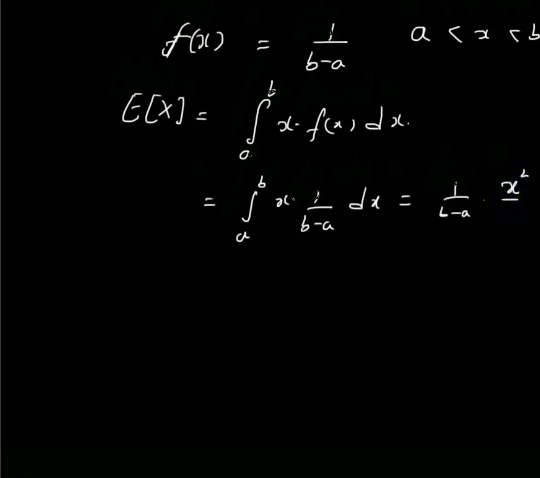 f(x) = 1/(b-a) a < x < b
E[X] = ∫_a^b x. f(x) dx.
= ∫_a^b x. 1/(b-a) dx = 1/(b-a) . x²